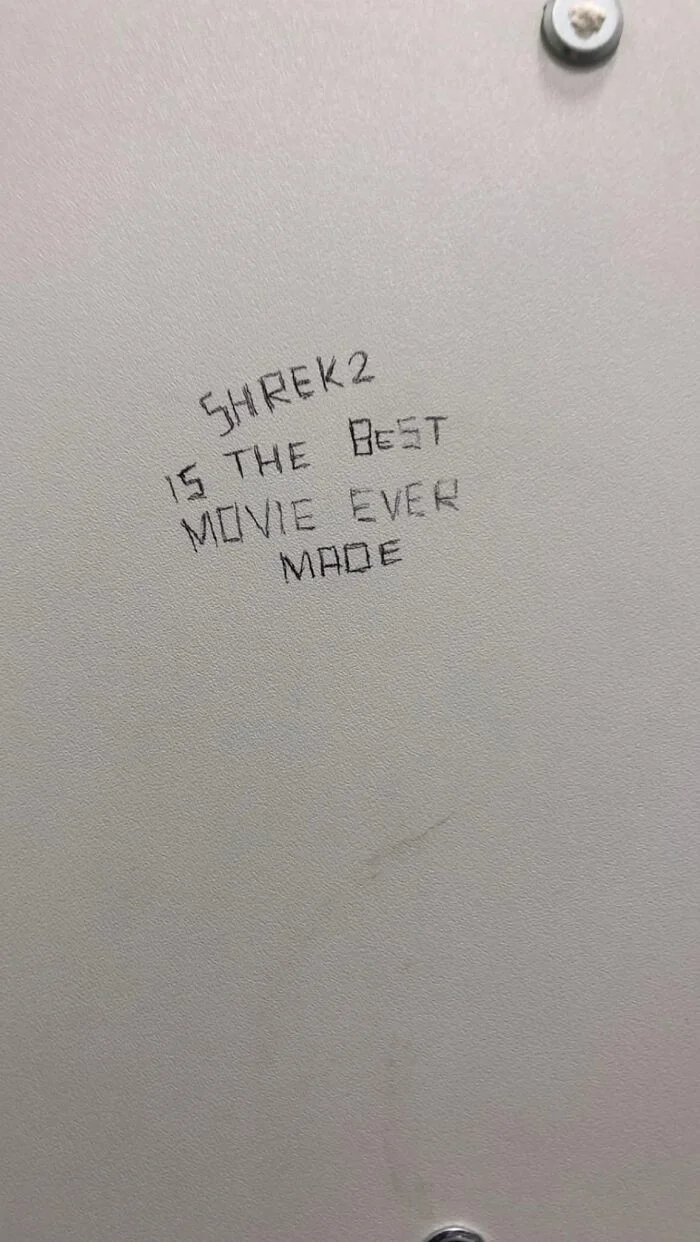 SHREK2
IS THE BEST
MOVIE EVER
MADE